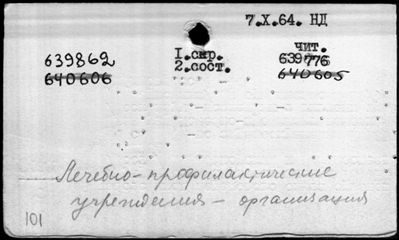 7.X.64. НД
639862 1.скр. чит.
640606 2.сост. 639776
640605
Лечебно-профилактические
учреждения – организация
101